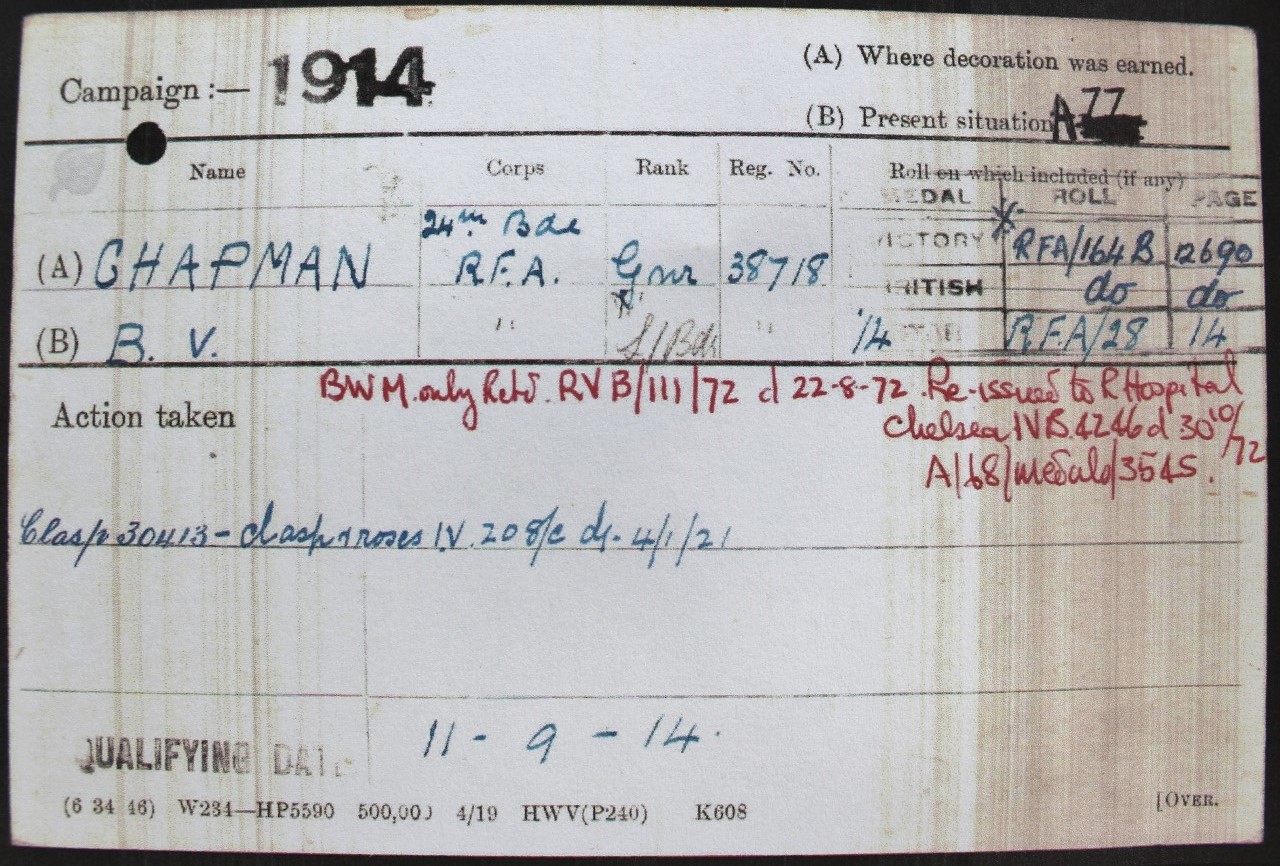 Campaign :— 1914
(A) Where decoration was earned.
(B) Present situation A 77
Name Corps Rank Reg. No. Roll on which included (if any)
MEDAL ROLL PAGE
24th Bde
(A) CHAPMAN R.F.A. Gnr 38718 VICTORY RFA/164B 12690
BRITISH do do
(B) B. V. " S/Bdr " 14 STAR R.F.A/28 14
BWM. only Retd. RVB/111/72 d 22-8-72. Re-issued to R Hospital
Action taken
Chelsea IVB.4246 d 30/10/72
A/68/medals/3545.
Clasp 30413 - clasp & roses I.V. 208/c d/- 4/1/21
QUALIFYING DATE 11 - 9 - 14.
(6 34 46) W234—HP5590 500,000 4/19 HWV(P240) K608 [OVER.